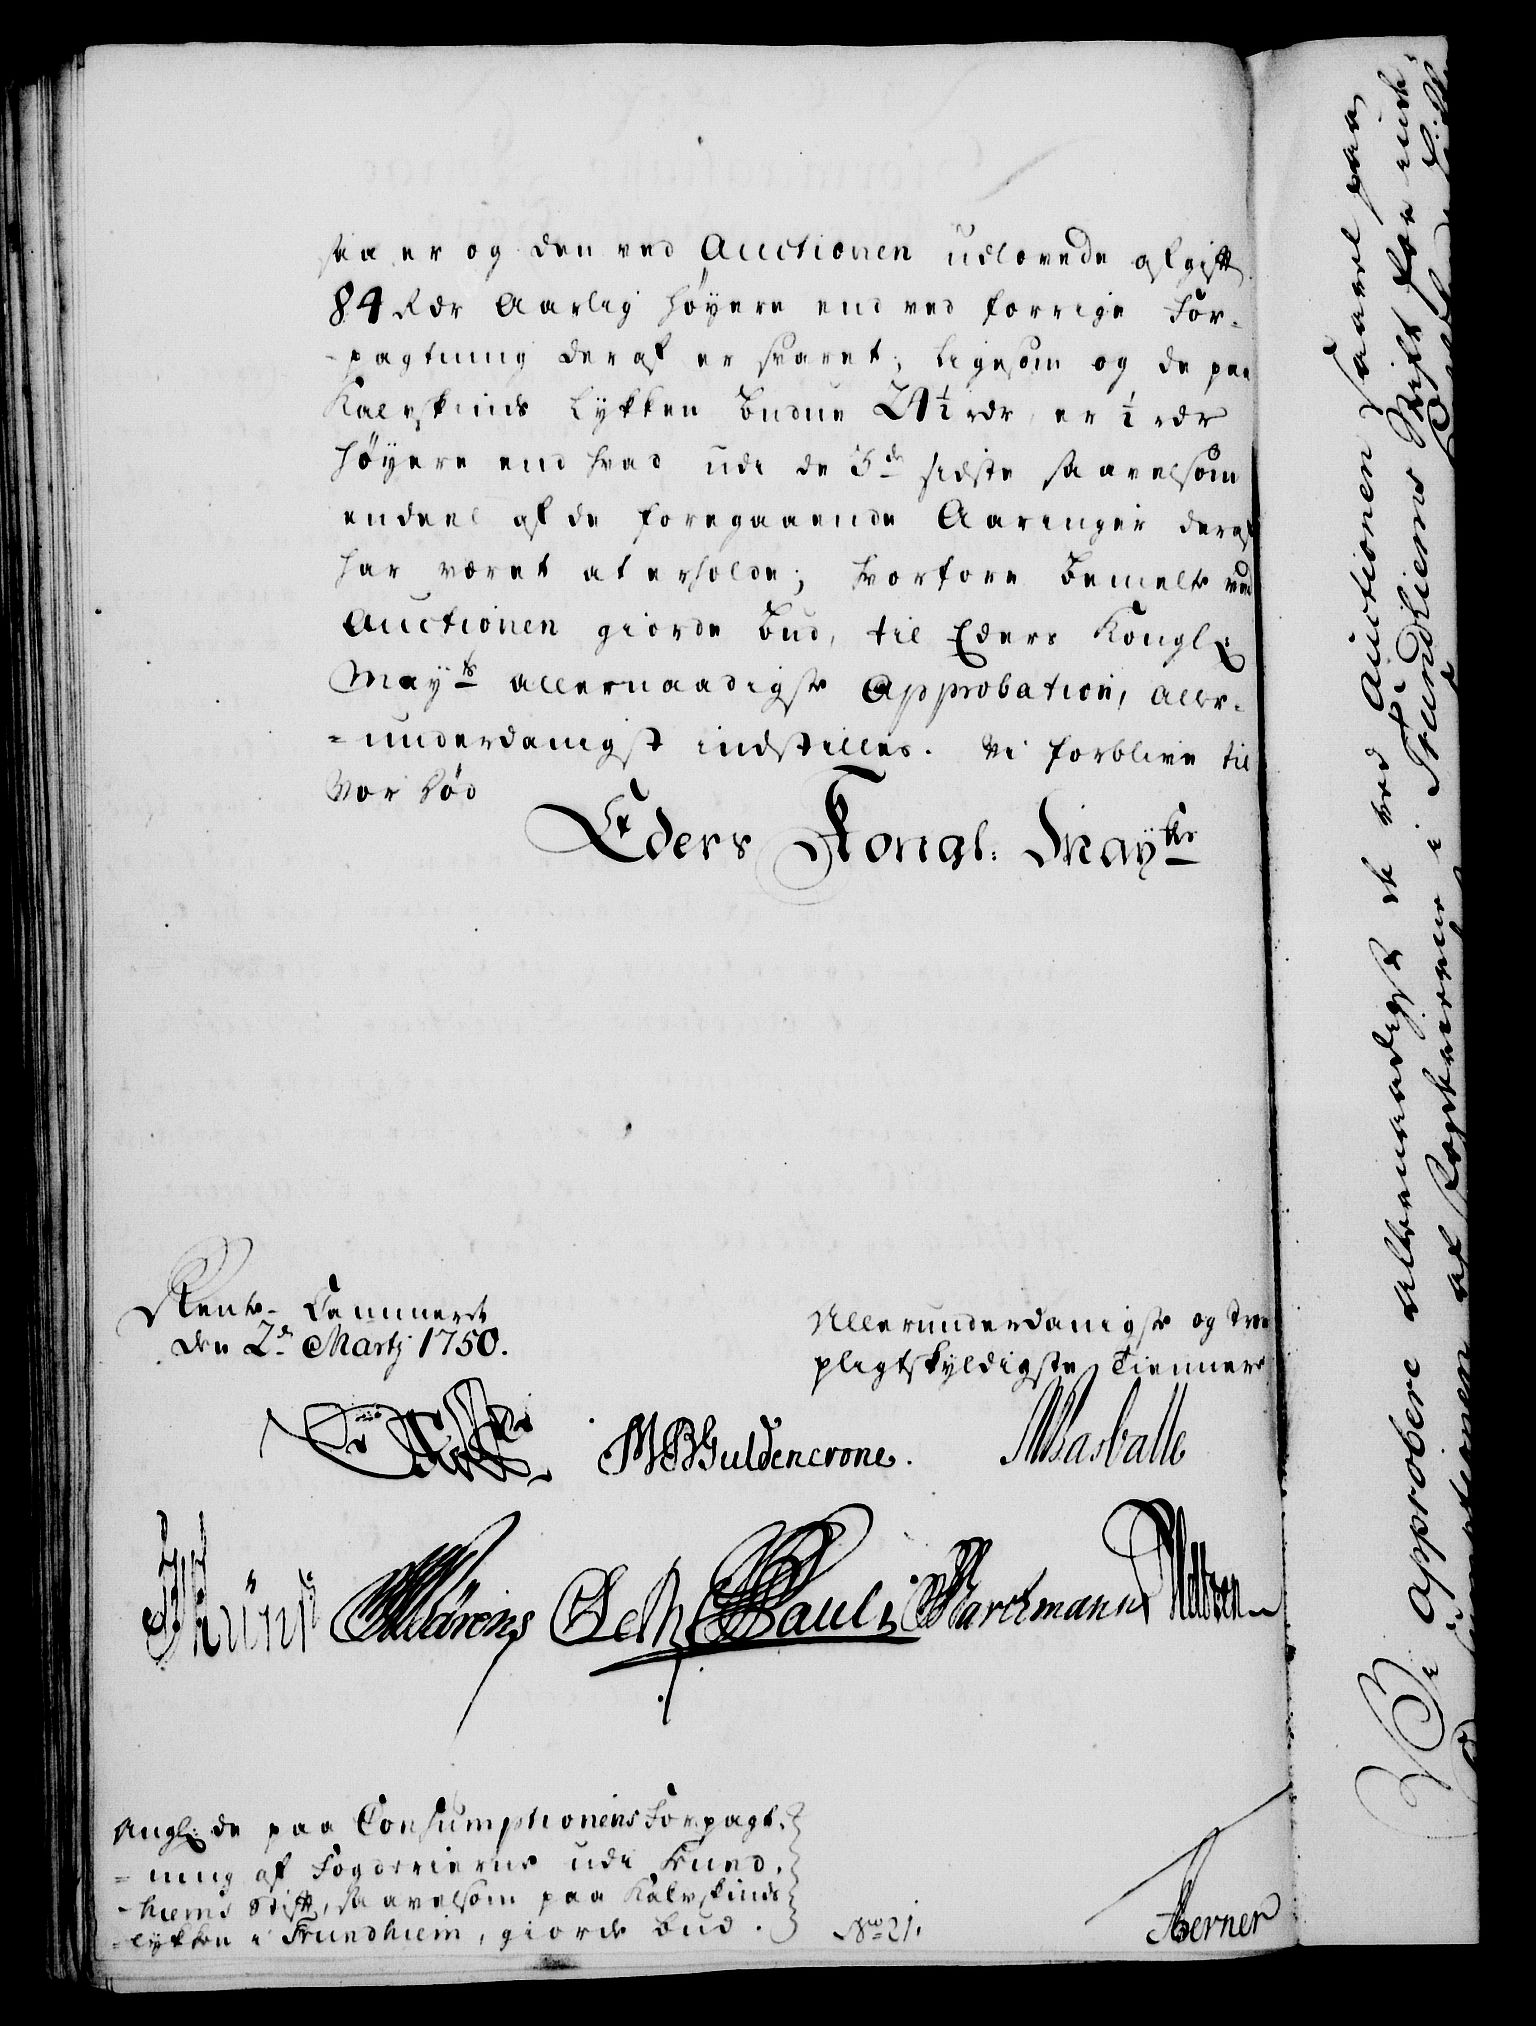 saa er og den ved Auctionen udlovede afgift
84 Rdr Aarlig høyere end ved forrige For-
-pagtning deraf er svaret; ligesom og de paa
Kalvskinds Lykken budne 24½ rdr, er ½ rdr
høyere end hvad udi de 3de sidste saavelsom
endeel af de foregaaende Aaringer deraf
har været at erholde; hvorfore bemelte ved
Auctionen giorde bud, til Eders Kongl:
Mayts allernaadigste Approbation, aller-
=underdanigst indstilles. Vi forblive til
vor død
Eders Kongl. Mayts
Rente-Cammeret
den 2de Martj 1750.
Allerunderdanigste og troe
pligtskyldigste Tiennere
MBGuldencrone.
Pauli
Angl: de paa Consumptionens Forpagt-
=ning af Fogderierne udi Trund-
-hiems Stift, saavelsom paa Kalvskinds
=lykken i Trundhiem, giorde bud.
No 21.
Berner
Vi approbere allernaadigst de ved Auctionen saavel paa
Consumptionen af Fogderierne i Trundhiems Stift for inde-